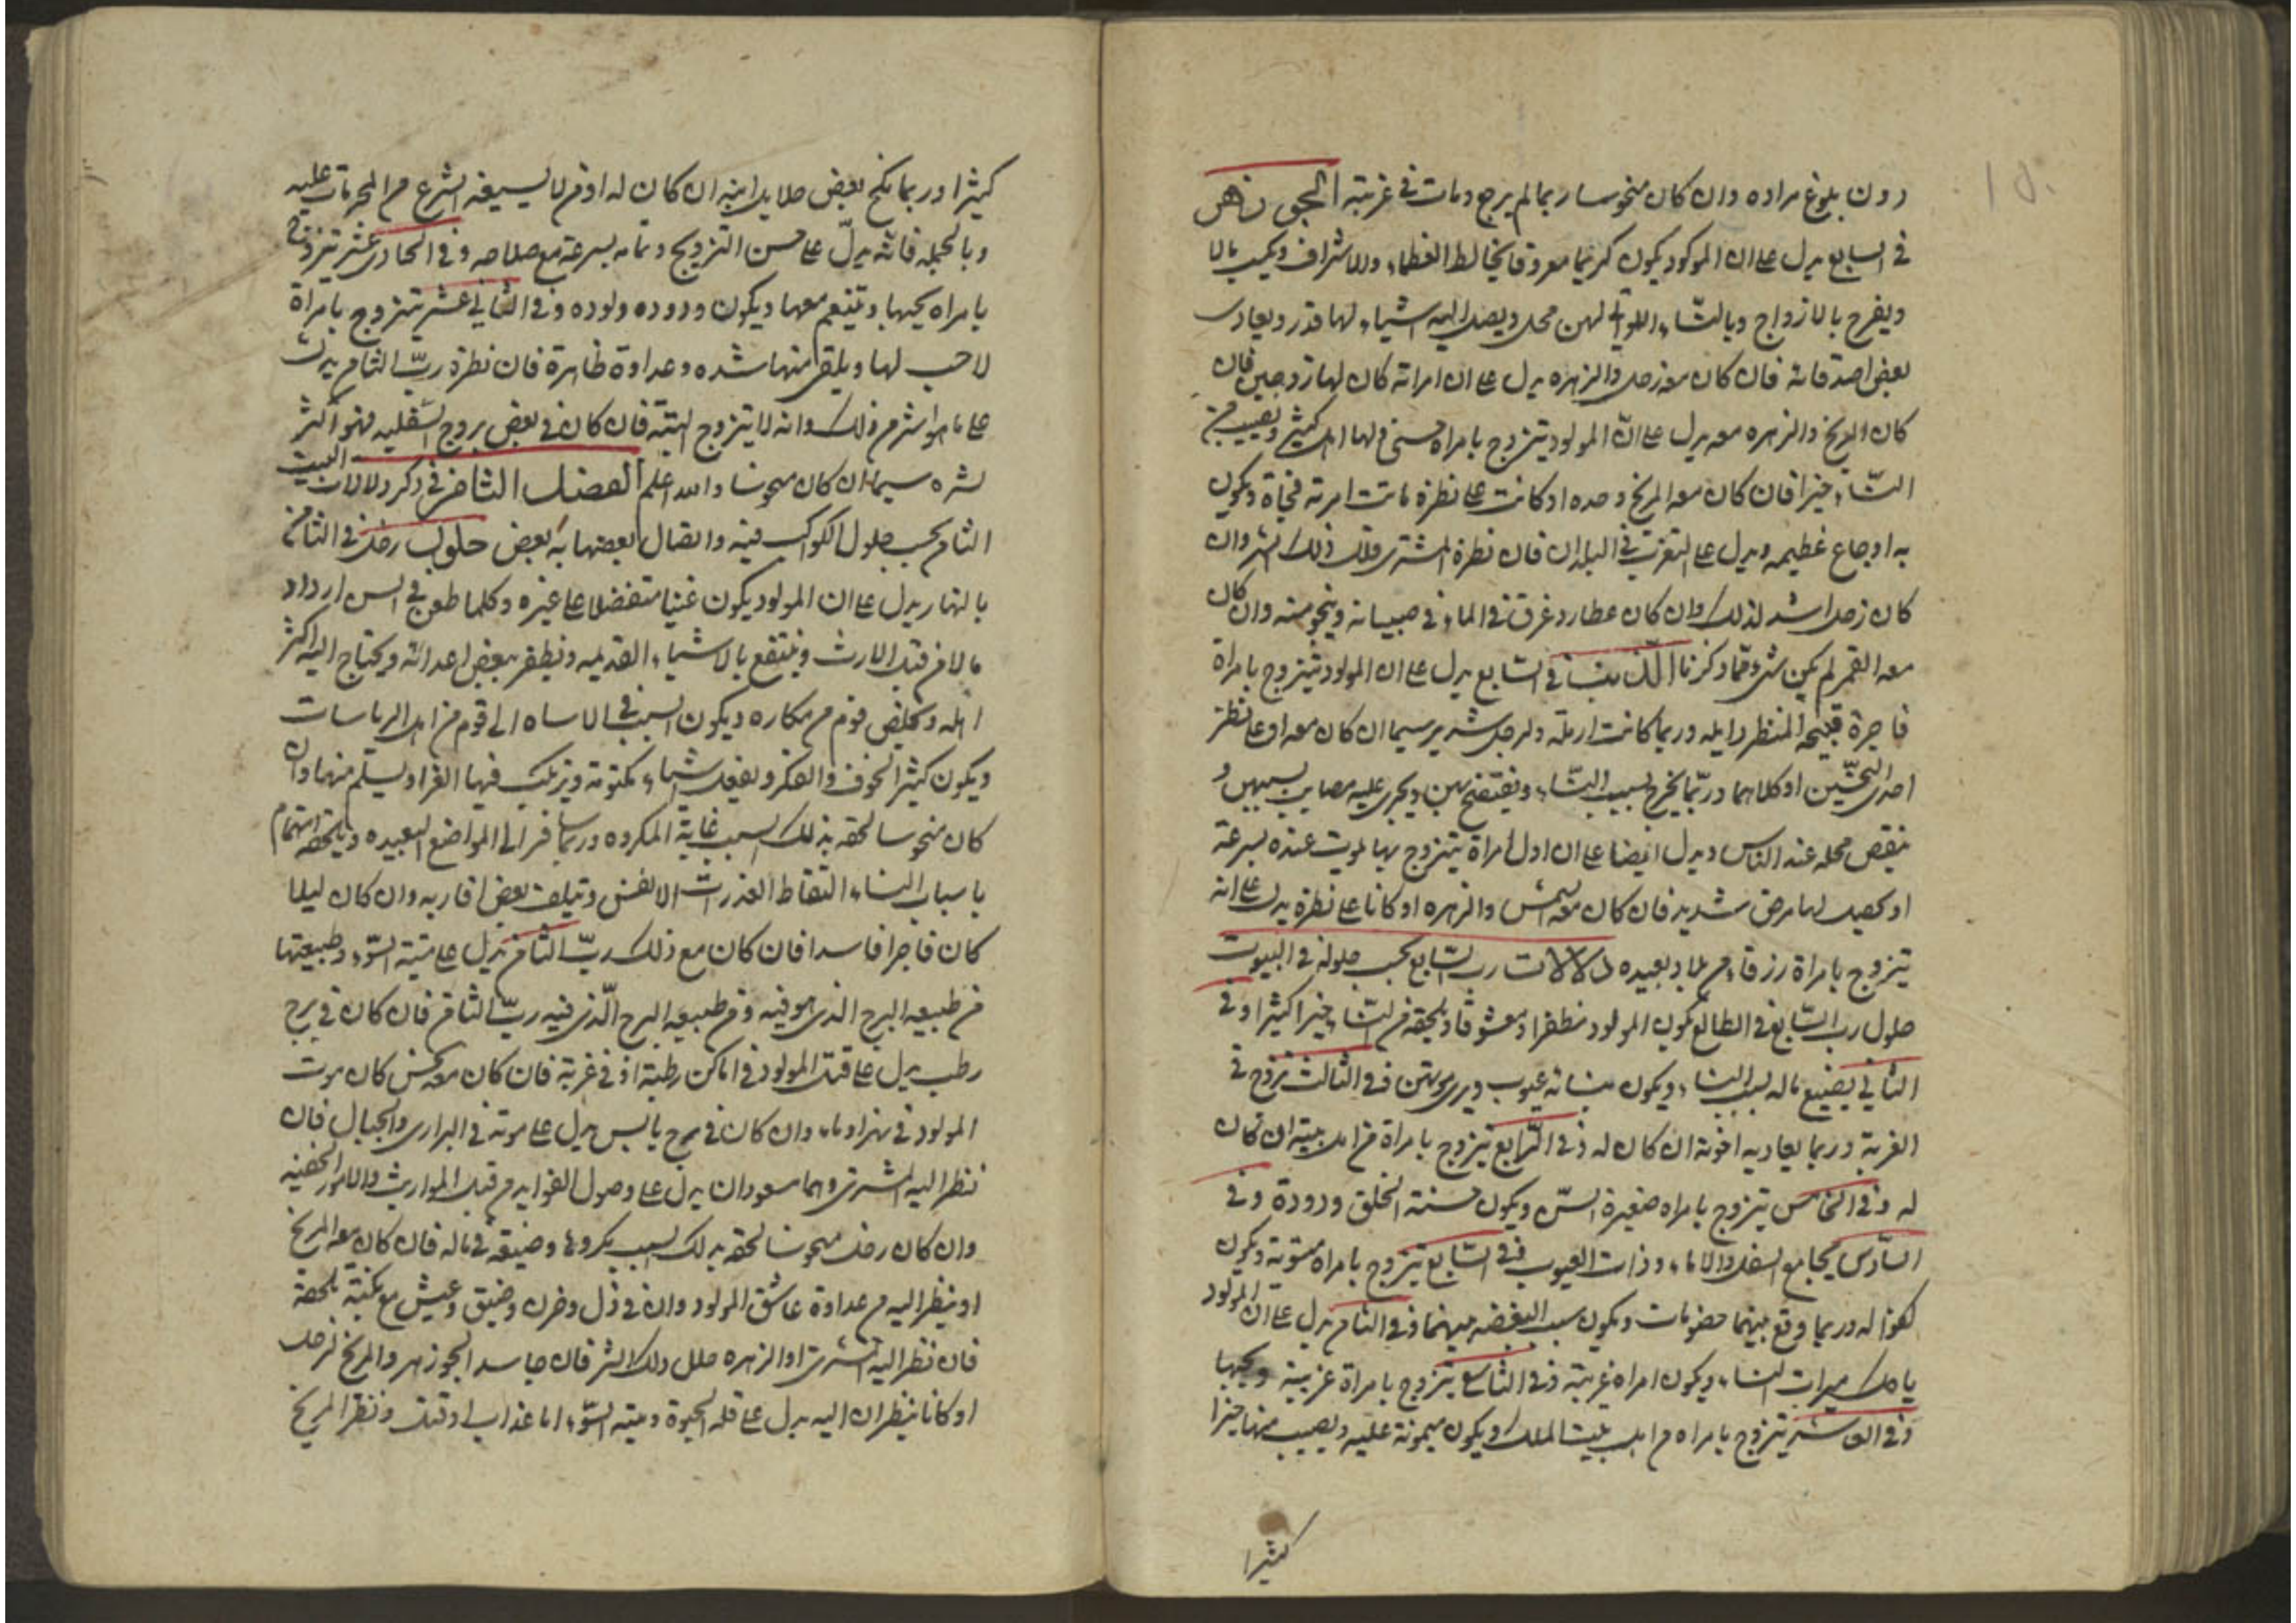 دون بلوغ مراده وان كان منحوسا ربما لم يرجع ومات في غربته الجوزهر
في السابع يدل على ان المولود يكون كريما معروفا يخالط العظماء والاشراف ويكسب مالا
ويفرح بالازواج وبالنساء اللواتي لهن محل ويصل اليه اشياء لها قدر ويعادى
بعض اصدقائه فان كان معه زحل والزهره يدل على ان امراته كان لها زوجين فان
كان المريخ والزهره معه يدل على انّ المولود يتزوج بامراه حسنى لها اهل كثير ويصيب من
النساء خيرا فان كان معه المريخ وحده او كانت على نظره ماتت امرته فجاة ويكون
به اوجاع عظيمه ويدل على التغرب في البلدان فان نظره المشترى قلل ذلك الشر وان
كان زحل اشد لذلك وان كان عطارد غرق في الماء في صبيانه وينجو منه وان كان
معه القمر لم يكن شئ مما ذكرنا الذنب في السابع يدل على ان المولود يتزوج بامراة
فاجرة قبيحة المنظر وربما كانت ارملة ولرجل شرير سيما ان كان معه او على نظر
احدى النحسّين او كلاهما وربّما يخرج بسبب النساء ويفتضح بهن ويجرى عليه مصايب بسببهن و
ينقص محله عند الناس ويدل ايضا على ان اول امراة يتزوج بها يموت عنده بسرعة
او يحصل لها مرض شديد فان كان معه الشمس والزهره او كانا على نظره يدل على انه
يتزوج بامراة رزقاء من بلاد بعيده دلالات رب السابع بحسب حلوله في البيوت
حلول رب السّابع في الطالع يكون المولود مظفرا ومعشوقا ويلحقه من النساء خيرا كثيرا وفي
الثاني يضيع ماله بسبب النساء ويكون بنسائه عيوب ويرى موتهن وفي الثالث تزوج في
الغربة وربما يعاديه اخوته ان كان له وفي الرّابع يتزوج بامراة من اهل بيته ان كان
له وفي الخامس يتزوج بامراه صغيرة السّن ويكون حسنة الخلق ودودة وفي
السّادس يجامع السفل والاماء وذات العيوب وفي السّابع يتزوج بامراه مستوية ويكون
كفوا له وربما وقع بينهما خصومات ويكون سبب البغضه بينهما وفي الثامن يدل على ان المولود
ياكل ميراث النساء ويكون امراه غريبة وفي التاسع يتزوج بامراة غريبة ويحبها
وفي العاشر يتزوج بامراه من اهل بيت الملك ويكون ميمونة عليه ويصيب منها خيرا
كثيرا
كثيرا وربما ينكح بعض حلايل ابنه ان كان له او من لا يسيغه الشرع من المحرمات عليه
وبالجمله فانّه يدلّ على حسن التزويج وتمامه بسرعة مع صلاحه وفي الحادى عشر يتزوج
بامراه يحبها ويتنعم معها ويكون ودوده ولوده وفي الثاني عشر يتزوج بامراة
لا حسب لها ويلقى منها شده وعداوة ظاهرة فان نظره ربّ الثامن يدل
على ما هو اشر من ذلك وانه لا يتزوج البتة فان كان في بعض بروج السّفليه فهو اكثر
لشره سيما ان كان منحوسا والله اعلم الفصل الثامن في ذكر دلالات البيت
الثامن بحسب حلول الكواكب فيه واتصال بعضها به بعض حلول زحل في الثامن
بالنهار يدل على ان المولود يكون غنيا متفضلا على غيره وكلما طعن في السن ازداد
مالا من قبل الارث وينتفع بالاشياء القديمه ويظفر ببعض اعدائه ويحتاج اليه اكثر
اهله ويخلص قوم من مكاره ويكون السبب في الاساه الى قوم من اهل الرياسات
ويكون كثير الخوف والفكر ويفعل اشياء مكتومة ويرتكب فيها الغرر ويسلم منها وان
كان منحوسا لحقه بذلك السبب غاية المكروه وربما سافر الى المواضع البعيده ويلحقه اهتمام
باسباب النساء التقاط القذرات الانفس ويتلف بعض اقاربه وان كان ليلا
كان فاجرا فاسدا فان كان مع ذلك ربّ الثامن يدل على ميتة السّوء وطبيعتها
من طبيعه البرج الذى هو فيه ومن طبيعه البرج الّذى فيه ربّ الثامن فان كان في برج
رطب يدل على قتل المولود في اماكن رطبة او في غربة فان كان معه نحس كان موت
المولود في نهر او ماء وان كان في برج يابس يدل على موته في البرارى والجبال فان
نظر اليه المشترى وهما مسعودان يدل على وصول الفوايد من قبل المواريث والامور الخفيه
وان كان زحل منحوسا لحقه بذلك السبب مكروها وضيقة في ماله فان كان معه المريخ
او ينظر اليه من عداوة عاش المولود وان في ذل وحزن وضيق وعيش مع نكبة يلحقه
فان نظر اليه المشترى او الزهره حلل ذلك الشر فان جاسد الجوزهر والمريخ لزحل
او كانا ينظران اليه يدل على قلة الحيوة وميته السّوء اما عذاب او قتل ونظر المريخ